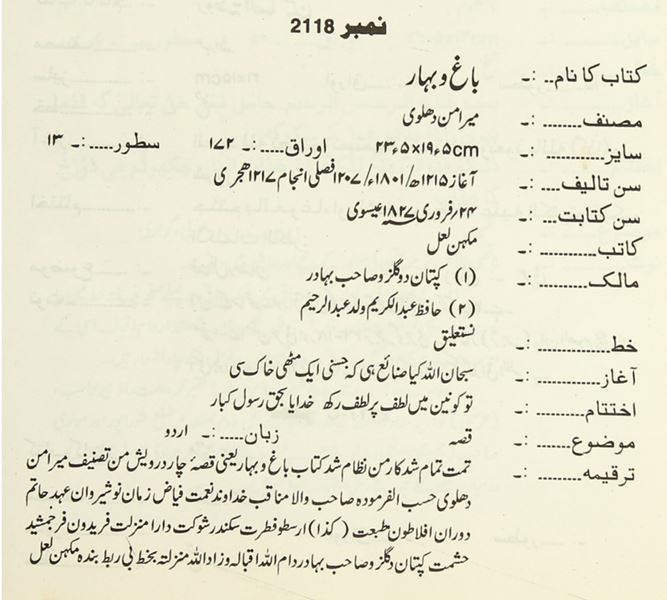 نمبر 2118
کتاب کا نام.. :۔ باغ و بہار
مصنف........ :۔ میرامن دھلوی
سایز.......... :۔ ۲۳ء۵×۱۹ء۵cm اوراق....:۔ ۱۷۲ سطور....:۔ ۱۳
سن تالیف.... :۔ آغاز ۱۲۱۵ھ/۱۸۰۱ء/۱۲۰۷ فصلی انجام ۱۲۱۷ ھجری
سن کتابت.... :۔ ۲۴؍فروری ۱۸۲۷ عیسوی
کاتب.......... :۔ مکہن لعل
مالک.......... :۔ (۱) کپتان دوگلزوصاحب بہادر
(۲) حافظ عبدالکریم ولد عبدالرحیم
خط............ :۔ نستعلیق
آغاز.......... :۔ سبحان اللہ کیا صانع ہی کہ جسنی ایک مٹھی خاک سی
اختتام........ :۔ تو کونین میں لطف پر لطف رکھ خدایا بحق رسول کبار
موضوع....... :۔ قصہ زبان.....:۔ اردو
ترقیمہ........ :۔ تمت تمام شد کار من نظام شد کتاب باغ و بہار یعنی قصۂ چار درویش من تصنیف میرامن
دھلوی حسب الفرمودہ صاحب والا مناقب خداوند نعمت فیاض زمان نوشیروان عہد حاتم
دوران افلاطون طبعت (کذا) ارسطو فطرت سکندر شوکت دارا منزلت فریدون فر جمشید
حشمت کپتان دگلزو صاحب بہادر دام اللہ اقبالہ و زاد اللہ منزلتہ بخط بی ربط بندہ مکہن لعل